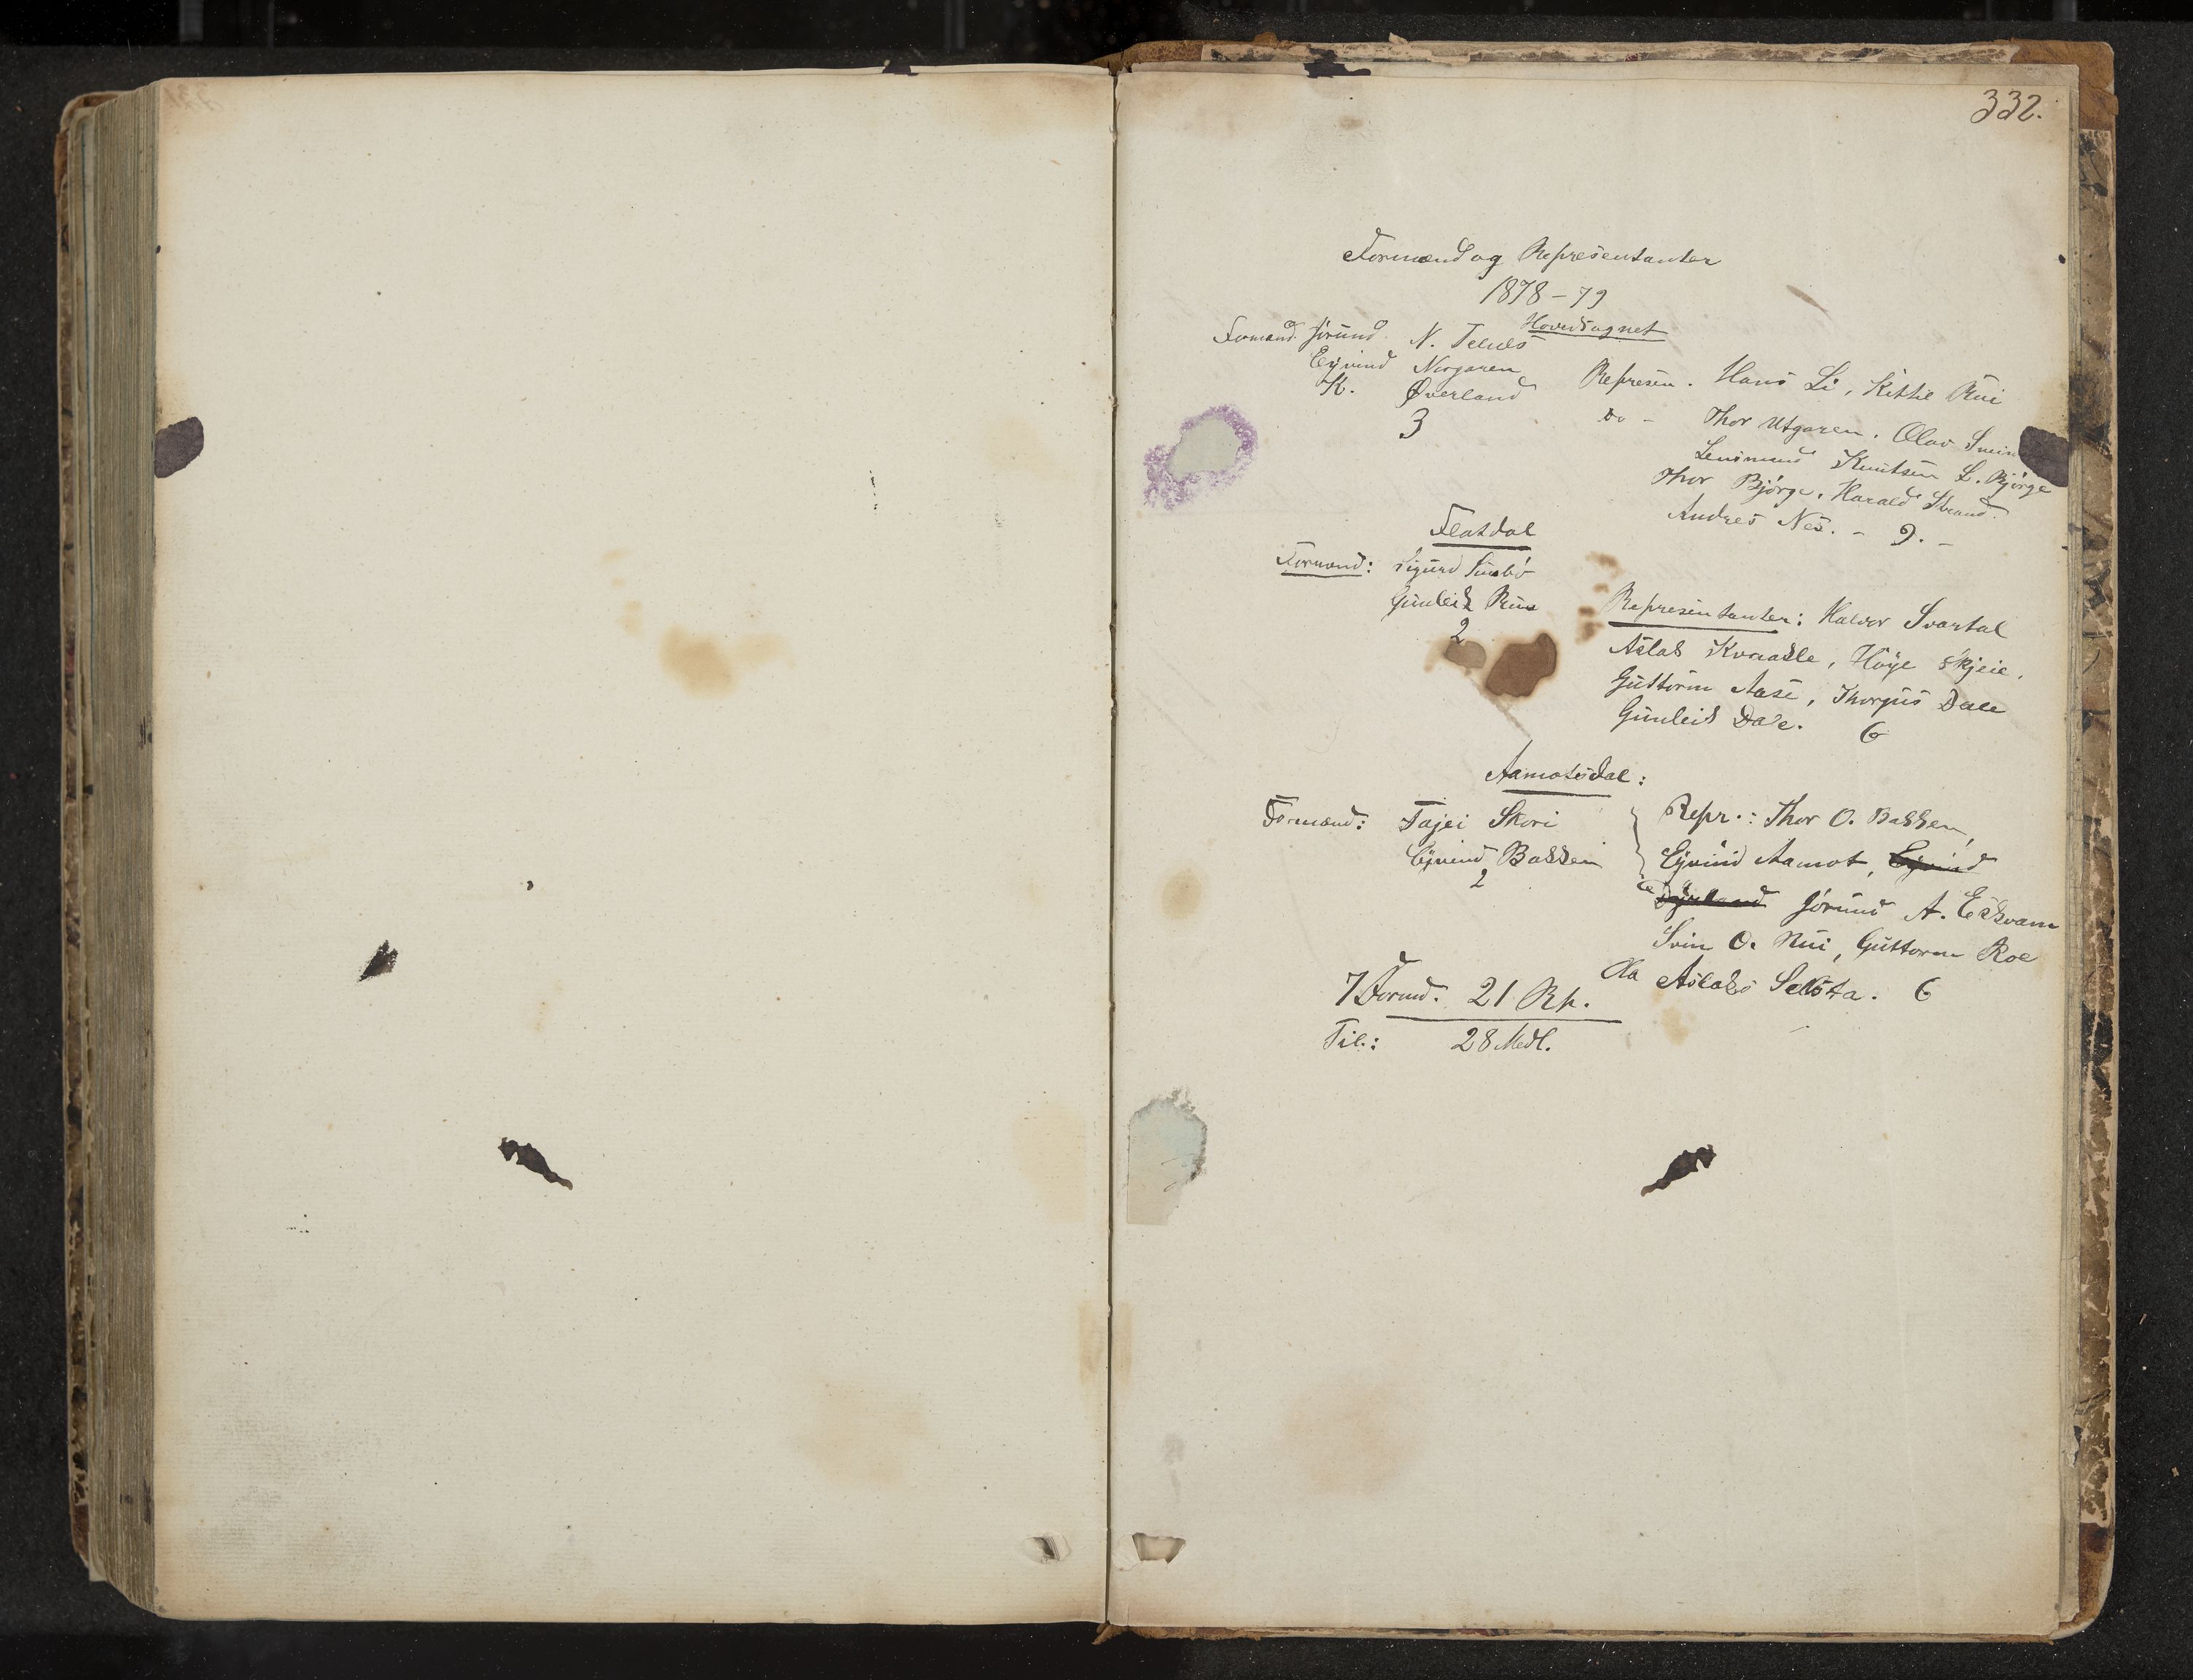 332.
Formænd og Repræsentanter
1878-79
Hovedsognet
Formænd. Jörund N. Telnes
Eyvind Norgaren
K. Øverland
3
Represen. Hans Li, Kittil Rui
do - Thor Utgaren. Olav Svein
Knutsen L. Bjørge
Thor Bjørge. Harald Strand.
Andres Nes. - 9. -
Flatdal
Formænd: Sigurd
Gunleik Rue
2
Repræsentanter: Halvor Svartal
Aslak Kvaale, Høye Skjeie,
Guttorm Aase, Thorgus Dale
Gunleik Dale. 6
Aamotsdal:
Formænd: Tajei Skori
Eyvind Bakken
2
Repr.: Thor O. Bakken,
Eyvind Aamot, Eyvind
Jørund A. Ekvam
Svin O. Rui, Guttorm Roe
Ola Aslaks Selsta. 6
7 Formd. 21 Rp.
Til.: 28 Medl.